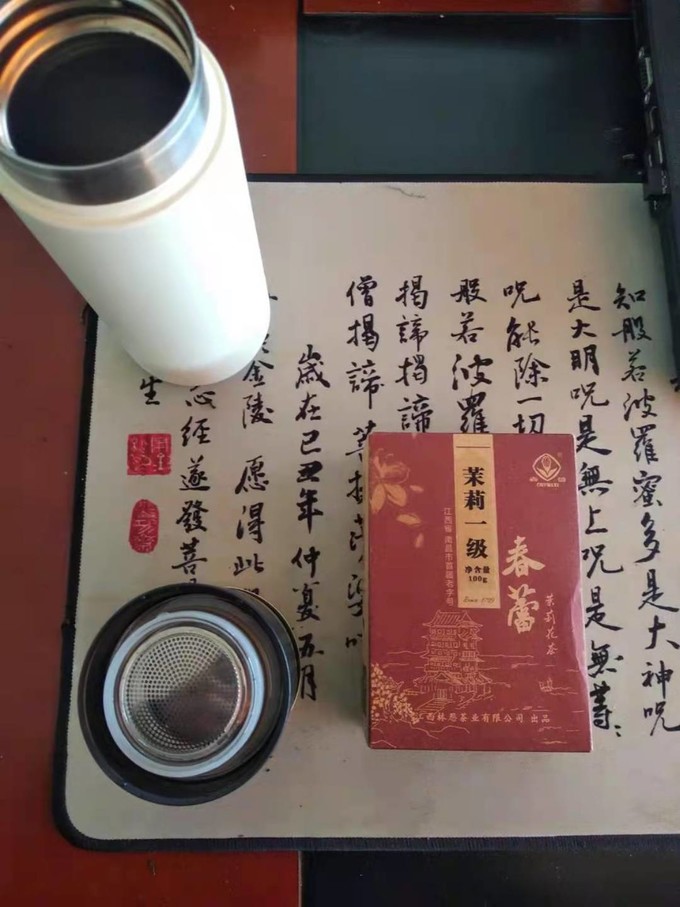 知般若波羅蜜多是大神呪
是大明呪是無上呪是無等
呪能除一切
般若波羅
揭諦揭諦
僧揭諦菩提
歲在己丑年仲夏五月
金陵 愿得此
心經遂發菩
生
茉莉一级
净含量
100g
江西省 南昌市首届老字号
春蕾
茉莉花茶
江西林恩茶业有限公司 出品